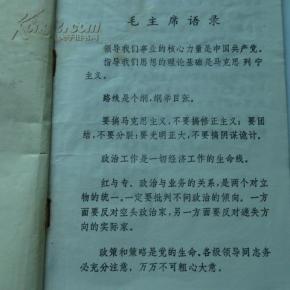 毛主席语录
领导我们事业的核心力量是中国共产党。
指导我们思想的理论基础是马克思列宁
主义。
路线是个纲,纲举目张。
要搞马克思主义,不要搞修正主义;要团
结,不要分裂;要光明正大,不要搞阴谋诡计。
政治工作是一切经济工作的生命线。
红与专、政治与业务的关系,是两个对立
物的统一。一定要批判不问政治的倾向。一方
面要反对空头政治家,另一方面要反对迷失方
向的实际家。
政策和策略是党的生命。各级领导同志务
必充分注意,万万不可粗心大意。